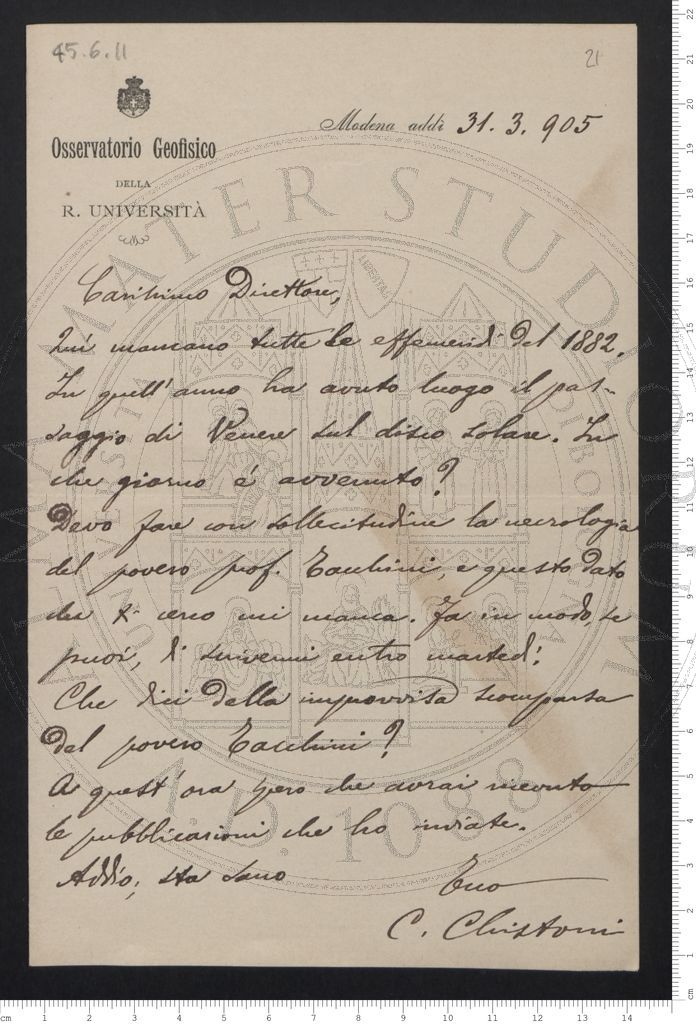 45.6.11
21
Modena addì 31. 3. 905
Osservatorio Geofisico
DELLA
R. UNIVERSITÀ
Carissimo Direttore,
Qui mancano tutte le effemeridi del 1882.
In quell'anno ha avuto luogo il pas-
saggio di Venere sul disco solare. In
che giorno è avvenuto?
Devo fare con sollecitudine la necrologia
del povero prof. Tacchini, e questo dato
che cerco mi manca. Fa in modo, se
puoi, di scrivermi entro martedì.
Che dici della improvvisa scomparsa
del povero Tacchini?
A quest'ora spero che avrai ricevuto
le pubblicazioni che ho inviate.
Addio, sta sano
Tuo
C. Chistoni
ALMA MATER STUDIORUM
A.D. 1088
LIBERTAS